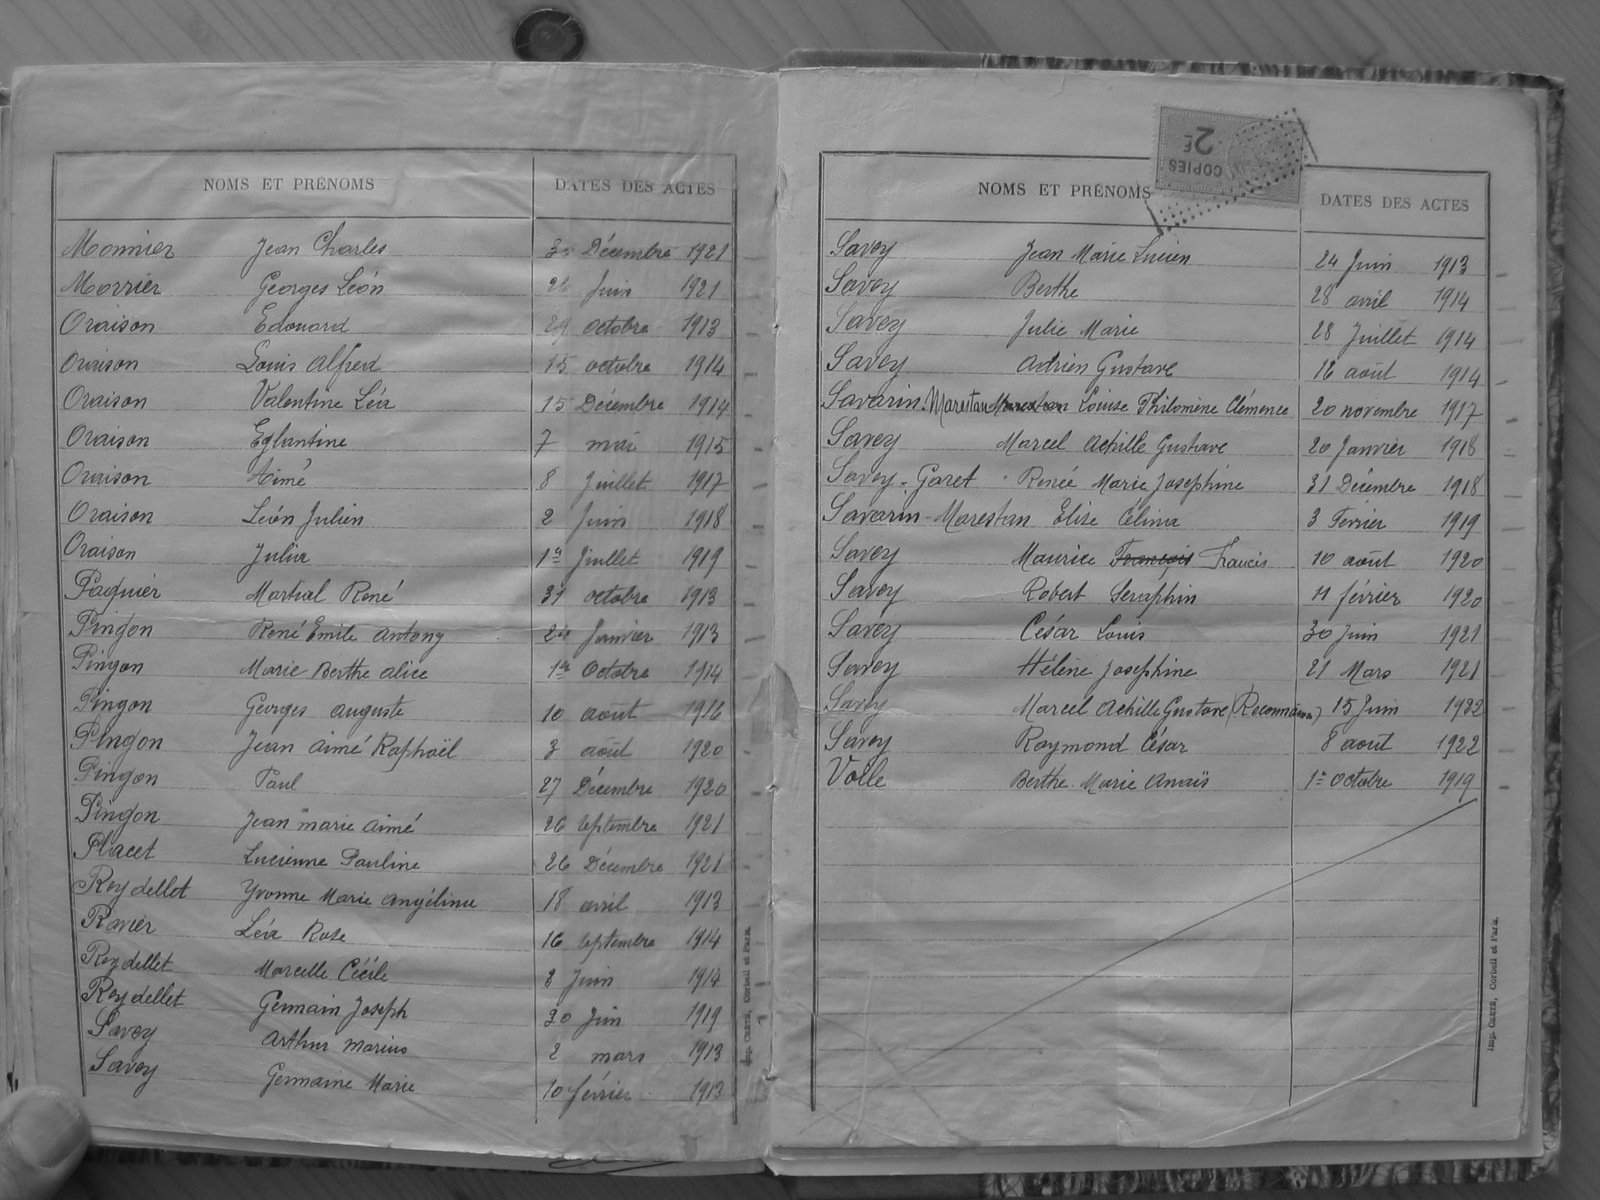 NOMS ET PRÉNOMS DATES DES ACTES
Monnier Jean Charles Décembre 1921
Morrier Georges Léon Juin 1921
Oraison Edouard 29 octobre 1913
Oraison Louis Alfred 15 octobre 1914
Oraison Valentine Léa 15 Décembre 1914
Oraison Eglantine 7 mai 1915
Oraison Aimé 8 Juillet 1917
Oraison Léon Julien 2 Juin 1918
Oraison Julia 1er Juillet 1919
Paquier Martial René 31 octobre 1913
Pingon René Emile Antony 24 Janvier 1913
Pingon Marie Berthe Alice 1er Octobre 1914
Pingon Georges Auguste 10 août 1916
Pingon Jean Aimé Raphaël 3 août 1920
Pingon Paul 27 Décembre 1920
Pingon Jean Marie Aimé 26 Septembre 1921
Placet Lucienne Pauline 26 Décembre 1921
Reydellet Yvonne Marie Angéline 18 avril 1913
Ravier Léa Rose 16 Septembre 1914
Reydellet Marcelle Cécile 8 Juin 1914
Reydellet Germain Joseph 30 Juin 1919
Savey Arthur Marius 2 mars 1913
Savey Germaine Marie 10 février 1913
Imp. Corbeil et Paris.
COPIES 2F
NOMS ET PRÉNOMS DATES DES ACTES
Savey Jean Marie Lucien 24 Juin 1913
Savey Berthe 28 avril 1914
Savey Julie Marie 28 Juillet 1914
Savey Adrien Gustave 16 août 1914
Savarin-Marestan Marestan Louise Philomène Clémence 20 novembre 1917
Savey Marcel Achille Gustave 20 Janvier 1918
Savey-Garet Renée Marie Josephine 31 Décembre 1918
Savarin-Marestan Elise Célina 3 Fevrier 1919
Savey Maurice François Francis 10 août 1920
Savey Robert Seraphin 11 février 1920
Savey César Louis 30 Juin 1921
Savey Hélène Josephine 21 Mars 1921
Savey Marcel Achille Gustave 15 Juin 1922
Savey Raymond César 8 août 1922
Volle Berthe Marie Anaïs 1er Octobre 1919
Imp. Corbeil et Paris.